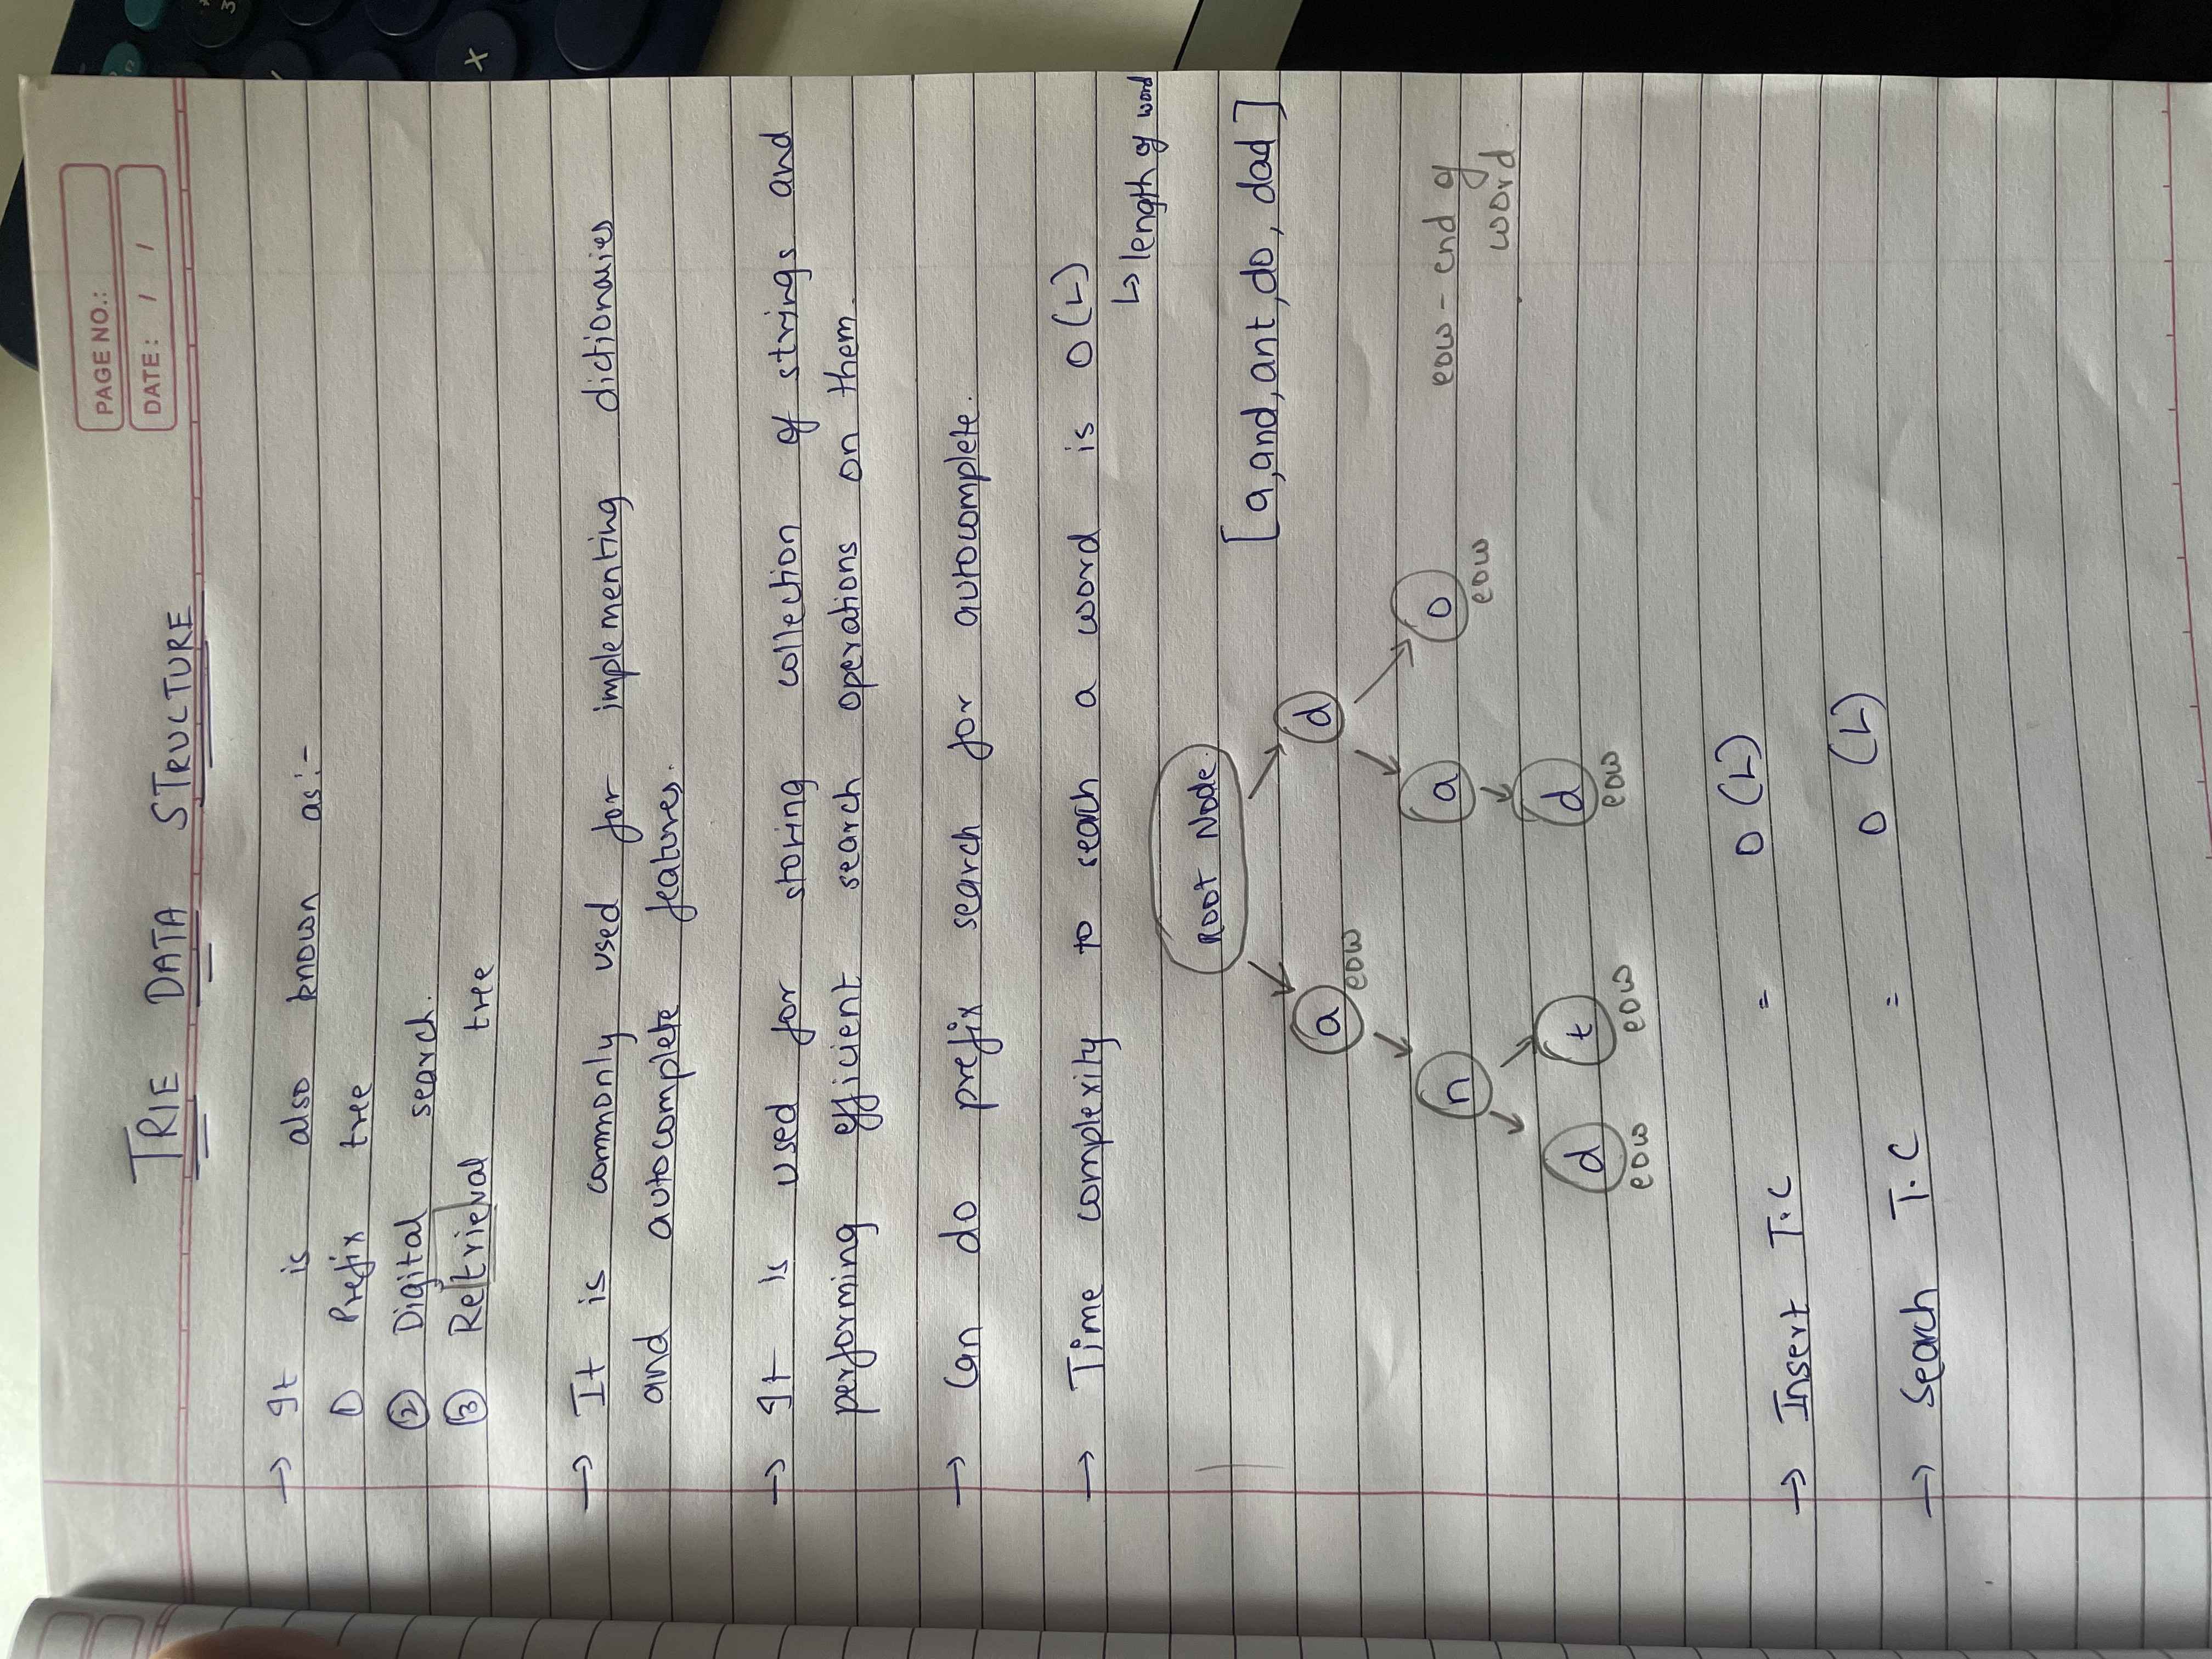 PAGE NO.:
DATE: / /
TRIE DATA STRUCTURE
→ It is also known as:-
① Prefix tree
② Digital search.
③ Retrieval tree
→ It is commonly used for implementing dictionaries
and autocomplete features.
→ It is used for storing collection of strings and
performing efficient search operations on them.
→ Can do prefix search for autocomplete.
→ Time complexity to seach a word is O(L)
↳ length of word
ROOT Node.
[a, and, ant, do, dad]
a d
eow
n a o
eow - end of
eow
word.
d t d
eow eow eow
→ Insert T.C = O (L)
→ Search T.C = O (L)
3
X